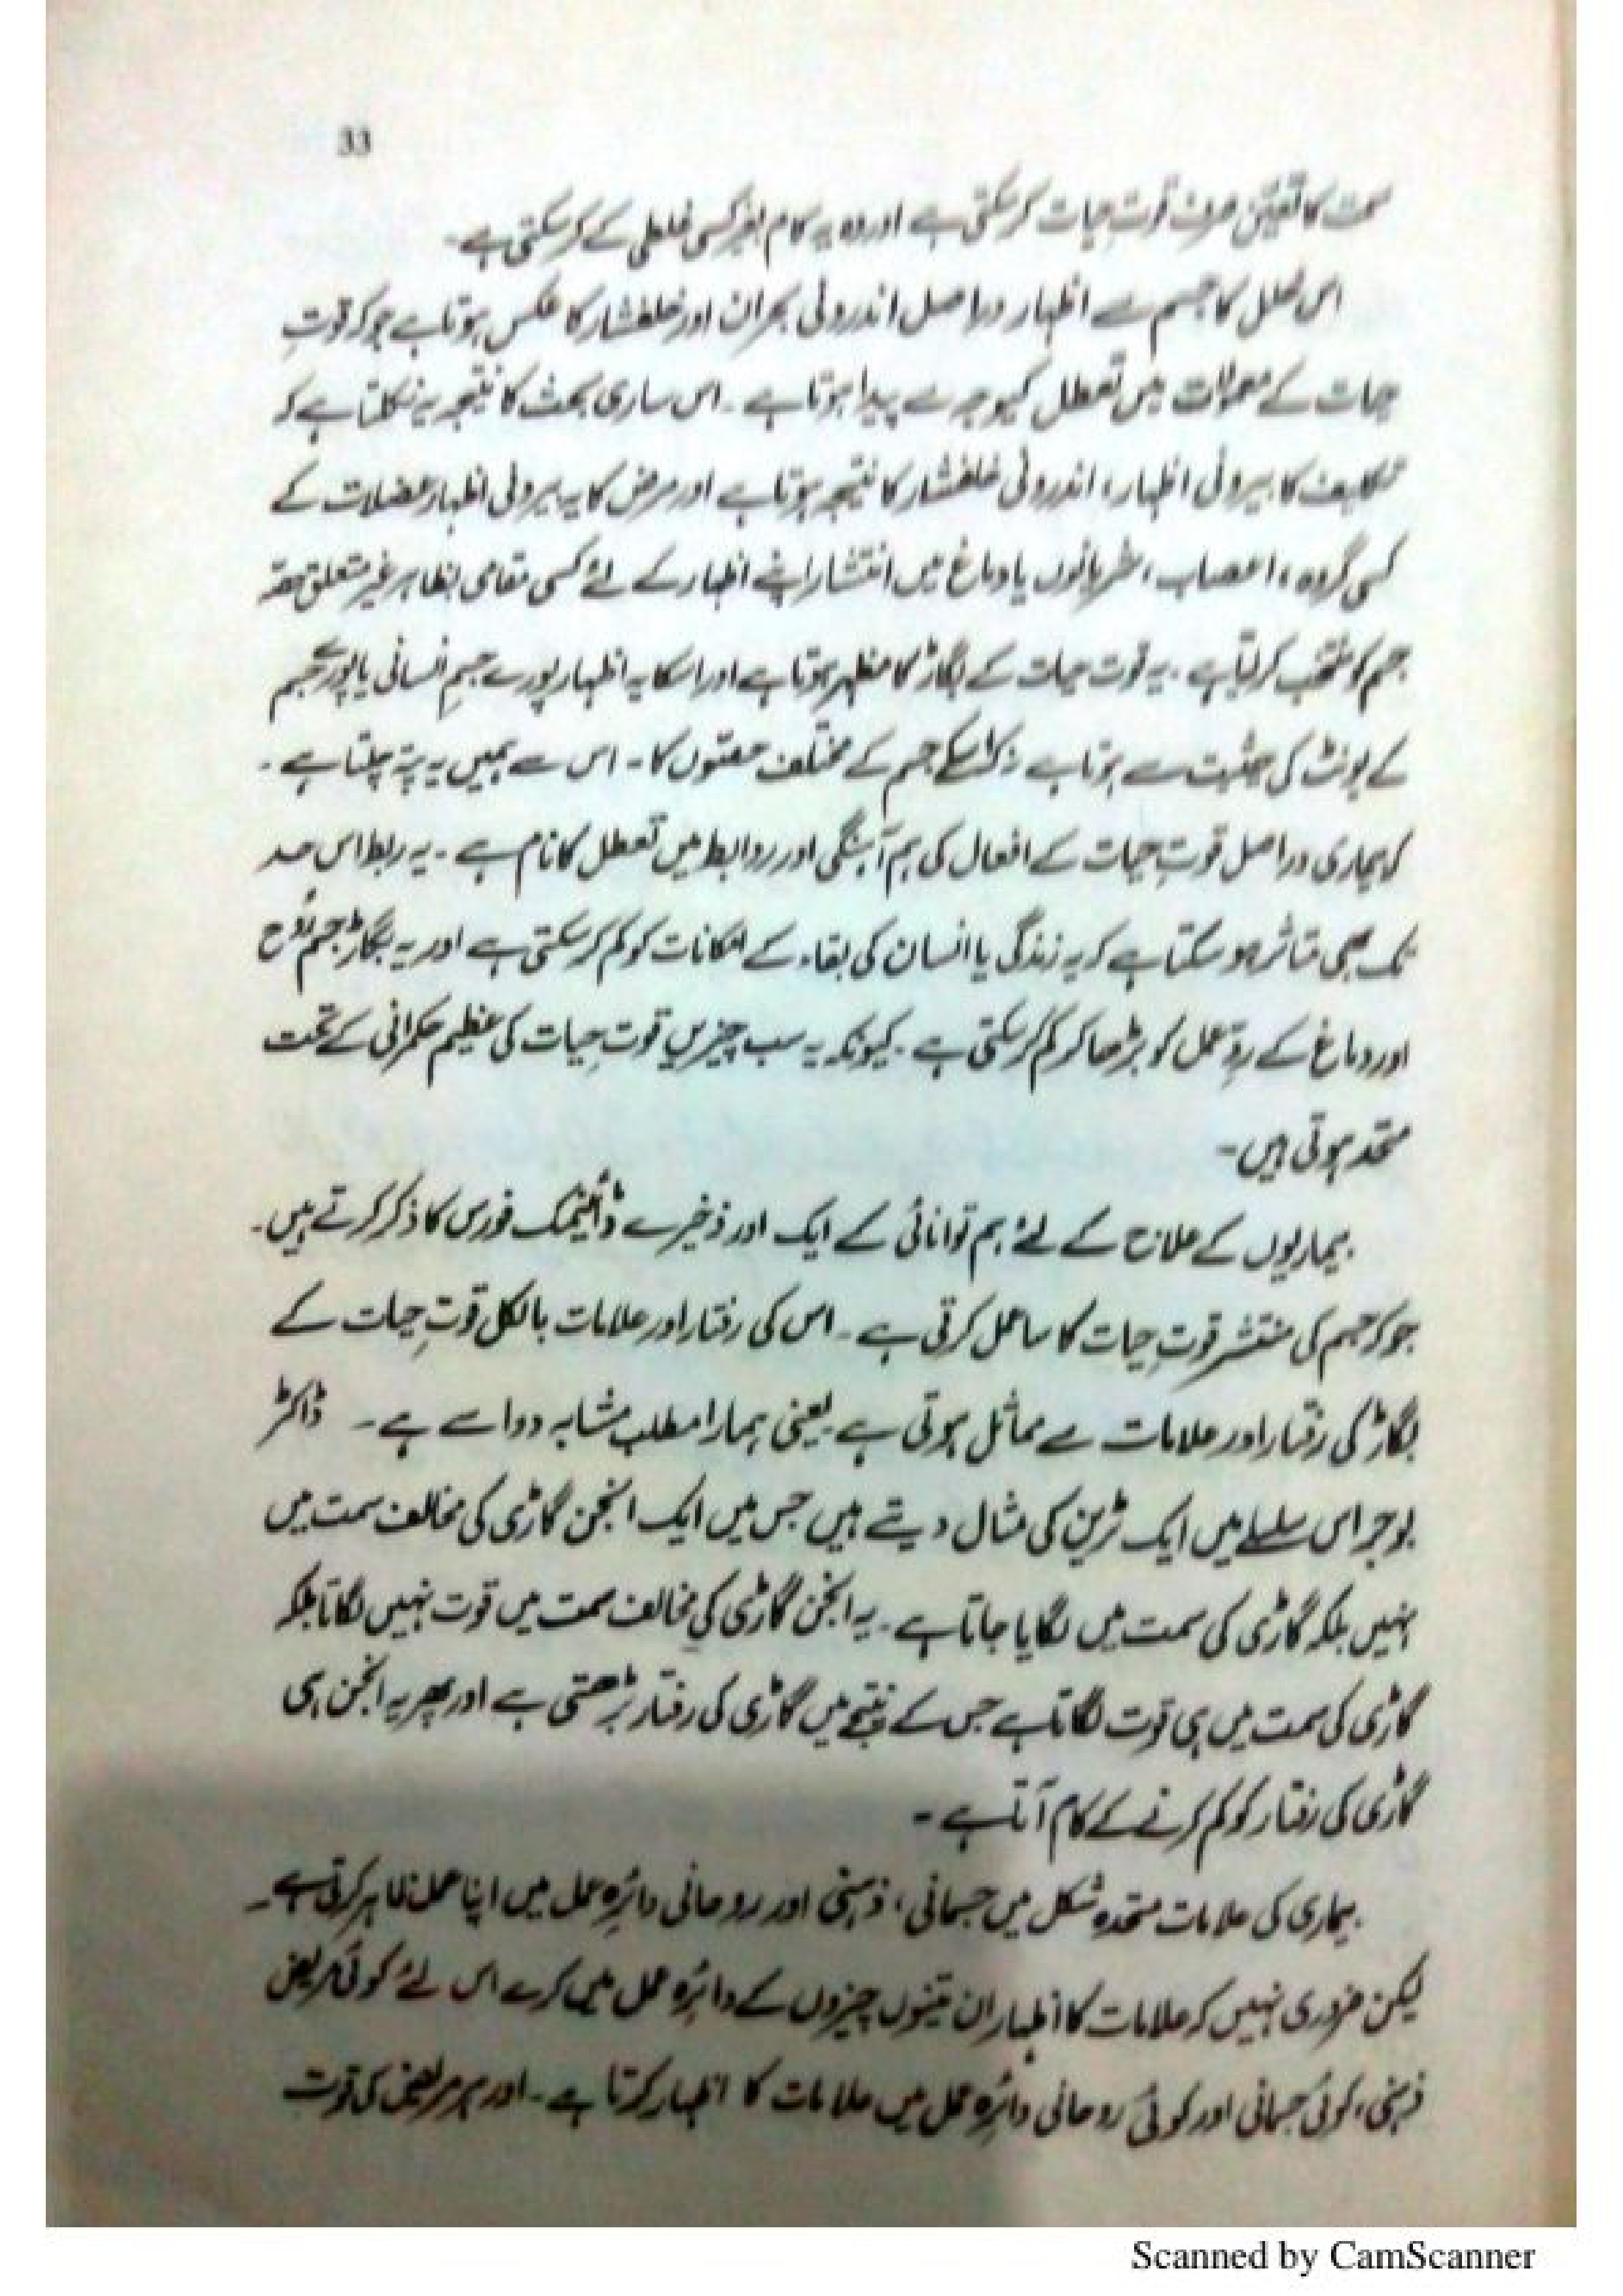 33
سمت کا تعین صرف قوتِ حیات کر سکتی ہے اور وہ یہ کام بغیر کسی غلطی کے کر سکتی ہے۔
اس خلل کا جسم سے اظہار دراصل اندرونی بحران اور خلفشار کا عکس ہوتا ہے جو کہ قوتِ
حیات کے معمولات میں تعطل کیوجہ سے پیدا ہوتا ہے۔ اس ساری بحث کا نتیجہ یہ نکلتا ہے کہ
تکالیف کا بیرونی اظہار، اندرونی خلفشار کا نتیجہ ہوتا ہے اور مرض کا یہ بیرونی اظہار عضلات کے
کسی گروہ، اعصاب، شریانوں یا دماغ میں انتشار اپنے اظہار کے لئے کسی مقامی بظاہر غیر متعلق حصّہ
جسم کو منتخب کر لیتا ہے۔ یہ قوت حیات کے بگاڑ کا مظہر ہوتا ہے اور اسکا یہ اظہار پورے جسمِ انسانی یا پورے جسم
کے یونٹ کی حیثیت سے ہوتا ہے نہ کہ اسکے جسم کے مختلف حصّوں کا۔ اس سے ہمیں یہ پتہ چلتا ہے۔
کہ بیماری دراصل قوتِ حیات کے افعال کی ہم آہنگی اور روابط میں تعطل کا نام ہے۔ یہ ربط اس حد
تک بھی متاثر ہو سکتا ہے کہ یہ زندگی یا انسان کی بقاء کے امکانات کو کم کر سکتی ہے اور یہ بگاڑ جسم روح
اور دماغ کے ردِّعمل کو بڑھا کر کم کر سکتی ہے۔ کیونکہ یہ سب چیزیں قوتِ حیات کی عظیم حکمرانی کے تحت
متحد ہوتی ہیں۔
بیماریوں کے علاج کے لئے ہم توانائی کے ایک اور ذخیرے ڈائنیمک فورس کا ذکر کرتے ہیں۔
جو کہ جسم کی منتشر قوتِ حیات کا سا عمل کرتی ہے۔ اس کی رفتار اور علامات بالکل قوتِ حیات کے
بگاڑ کی رفتار اور علامات سے مماثل ہوتی ہے۔ یعنی ہمارا مطلب مشابہ دوا سے ہے۔ ڈاکٹر
بوجر اس سلسلے میں ایک ٹرین کی مثال دیتے ہیں جس میں ایک انجن گاڑی کی مخالف سمت میں
نہیں بلکہ گاڑی کی سمت میں لگایا جاتا ہے۔ یہ انجن گاڑی کی مخالف سمت میں قوت نہیں لگاتا بلکہ
گاڑی کی سمت میں ہی قوت لگاتا ہے جس کے نتیجے میں گاڑی کی رفتار بڑھتی ہے اور پھر یہ انجن ہی
گاڑی کی رفتار کو کم کرنے کے کام آتا ہے۔
بیماری کی علامات متحدہ شکل میں جسمانی، ذہنی اور روحانی دائرہ عمل میں اپنا عمل ظاہر کرتی ہے۔
لیکن ضروری نہیں کہ علامات کا اظہار ان تینوں چیزوں کے دائرہ عمل میں کرے اس لئے کوئی مریض
ذہنی، کوئی جسمانی اور کوئی روحانی دائرہ عمل میں علامات کا اظہار کرتا ہے۔ اور ہر مریض کی قوت
Scanned by CamScanner